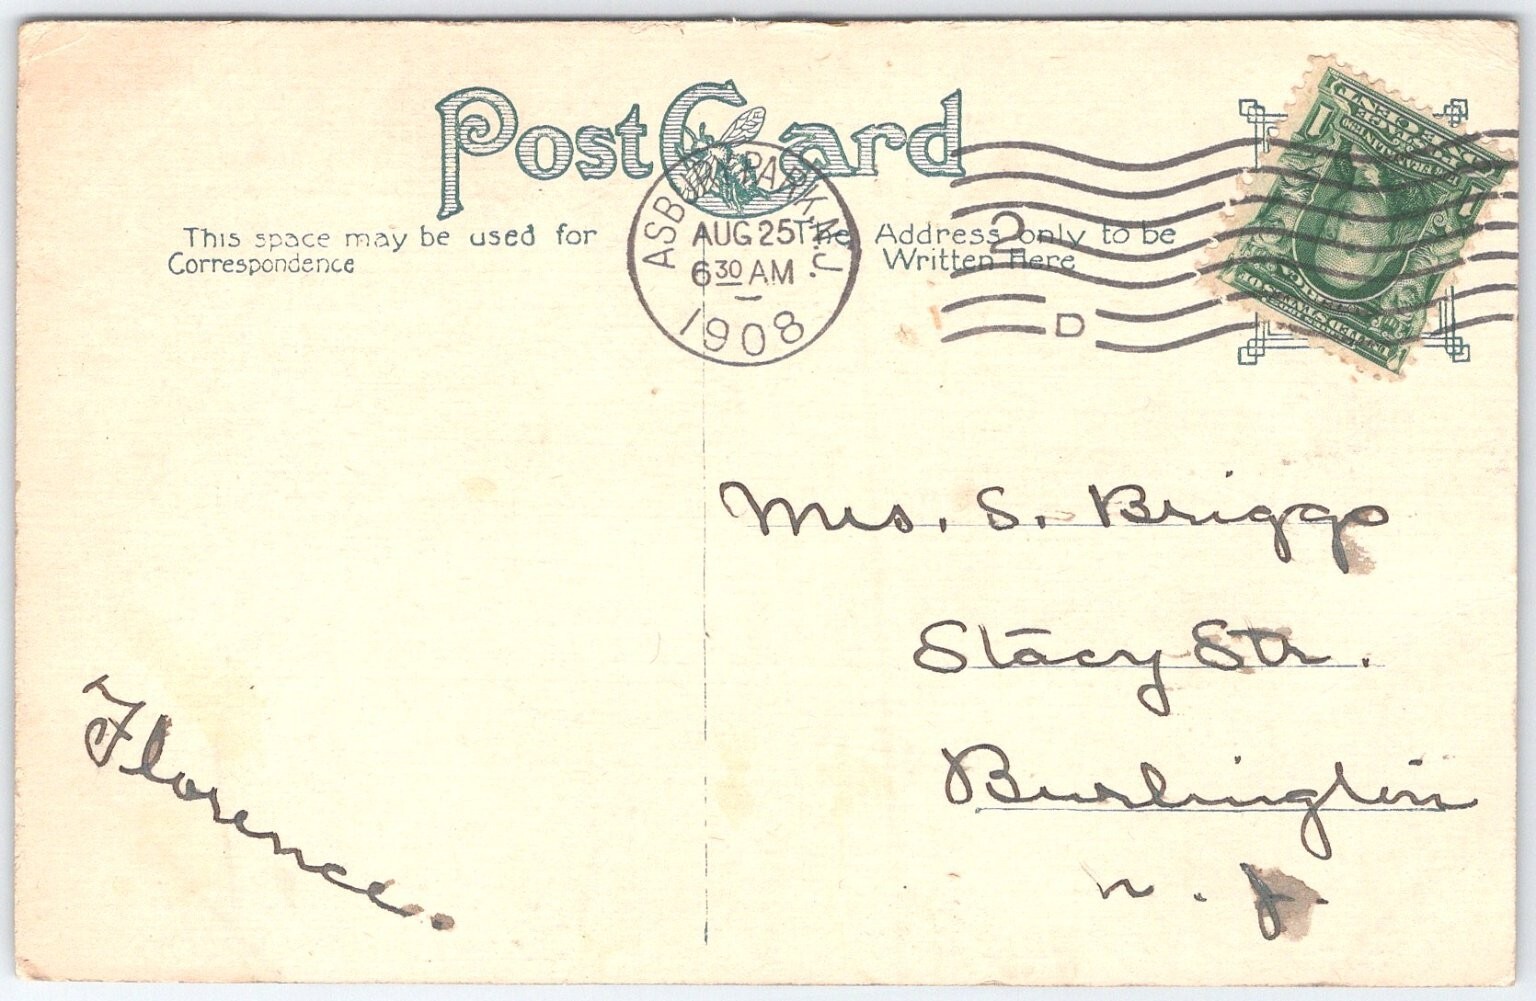 Post Card
This space may be used for
Correspondence
The Address only to be
Written Here
ASBURY PARK, N.J.
AUG 25
6 30 AM
1908
2
D
1
1
Mrs. S. Briggs
Stacy Str.
Burlington
N. J.
Florence.